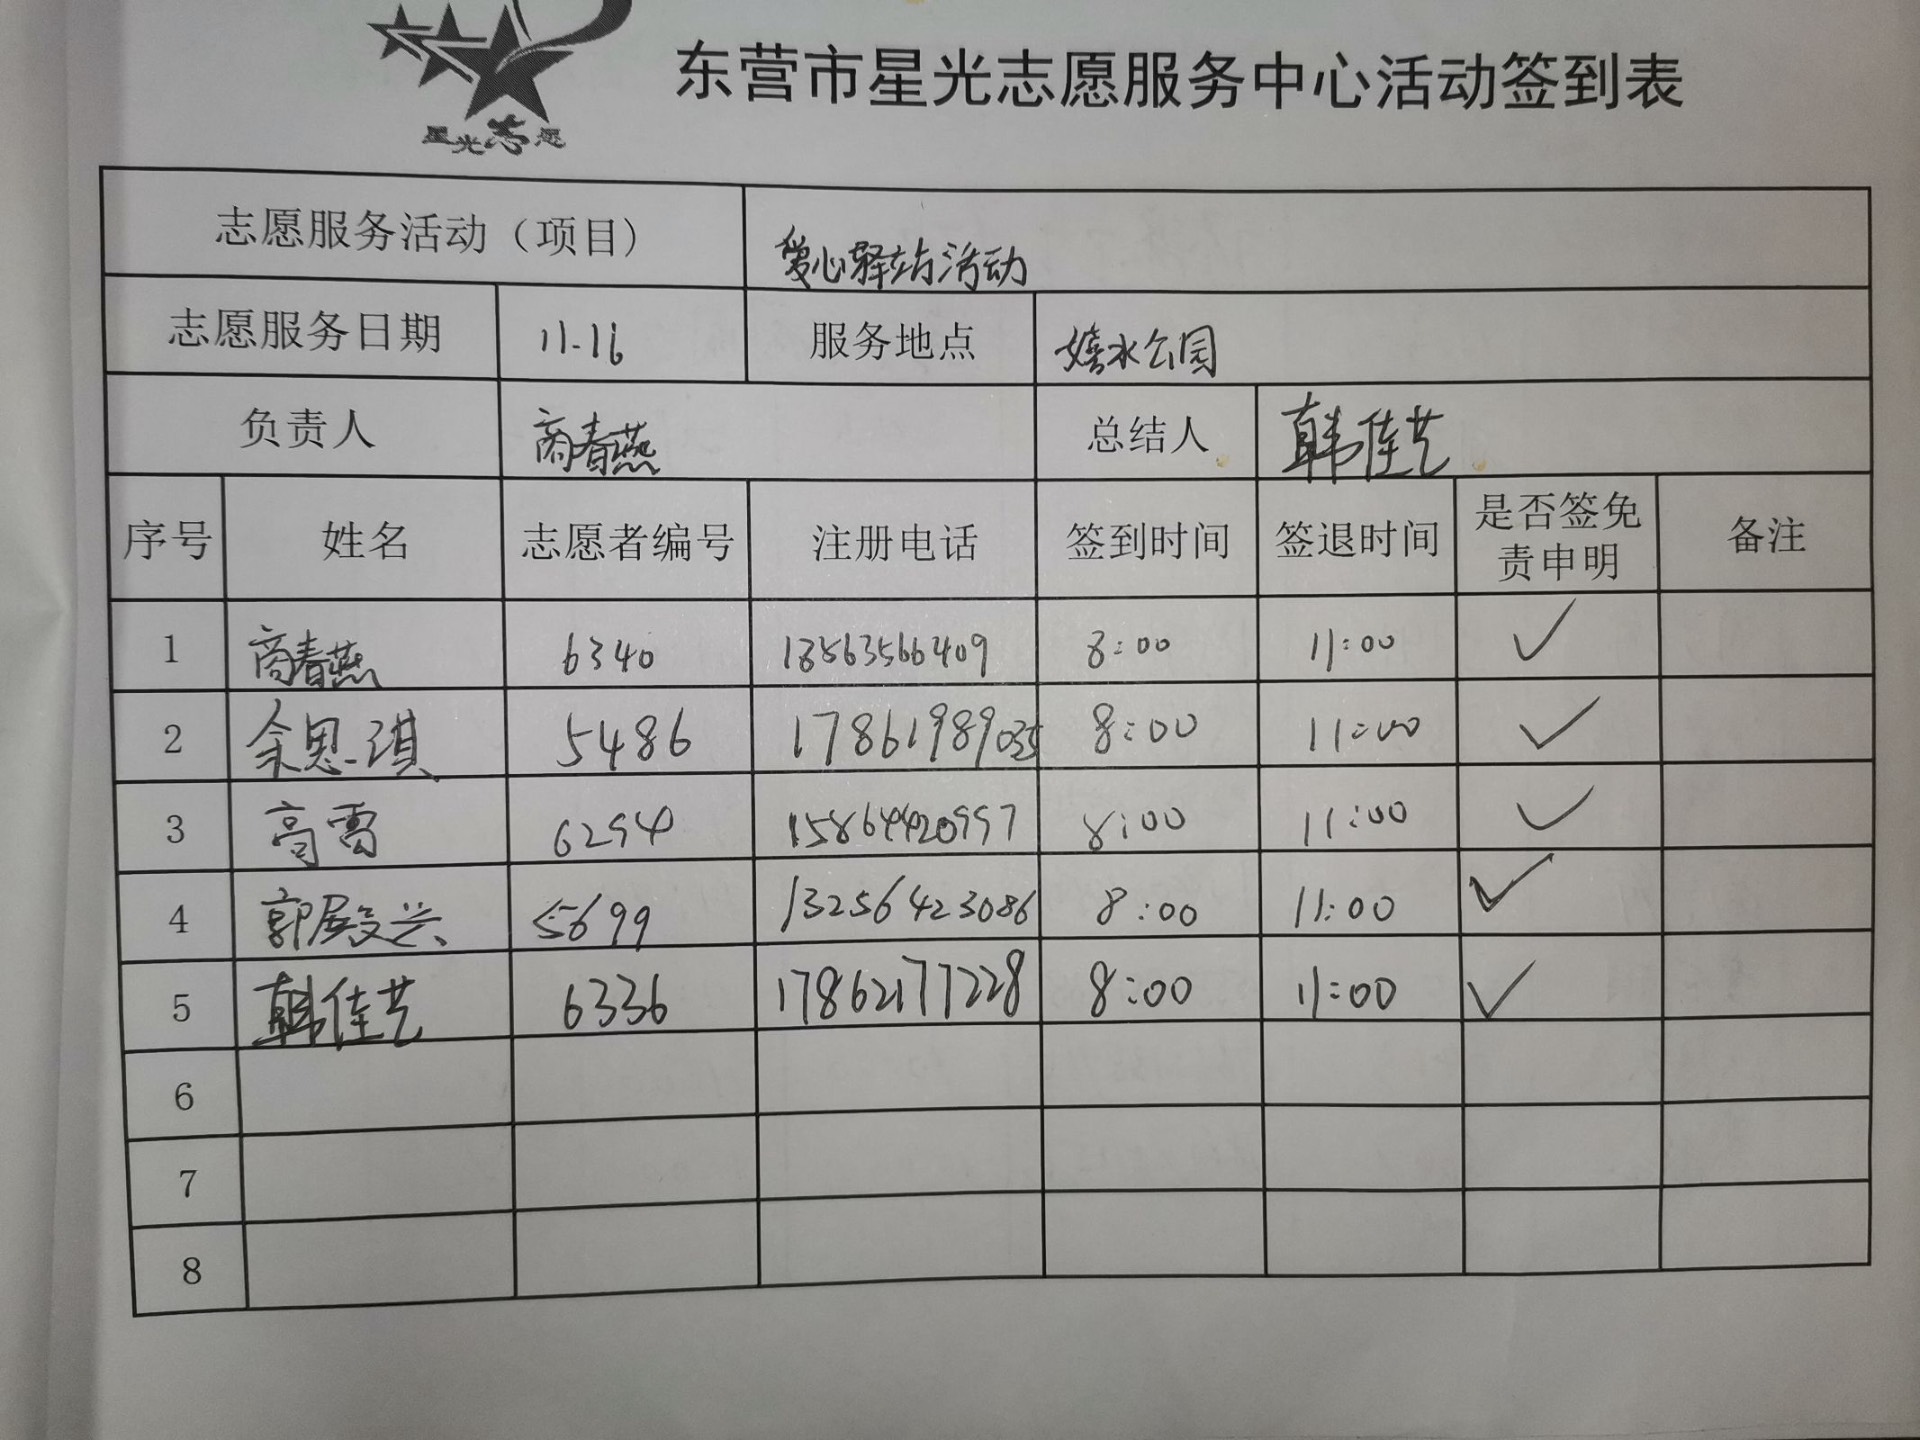 星光志愿
东营市星光志愿服务中心活动签到表
志愿服务活动（项目） 爱心驿站活动
志愿服务日期 11.16 服务地点 嬉水公园
负责人 商春燕 总结人 韩佳艺
序号 姓名 志愿者编号 注册电话 签到时间 签退时间 是否签免责申明 备注
1 商春燕 6340 18563566409 8:00 11:00 ✓
2 余思琪 5486 17861989035 8:00 11:00 ✓
3 高雷 6294 15864420997 8:00 11:00 ✓
4 郭殿兴 5699 13256423086 8:00 11:00 ✓
5 韩佳艺 6336 17862177228 8:00 11:00 ✓
6
7
8